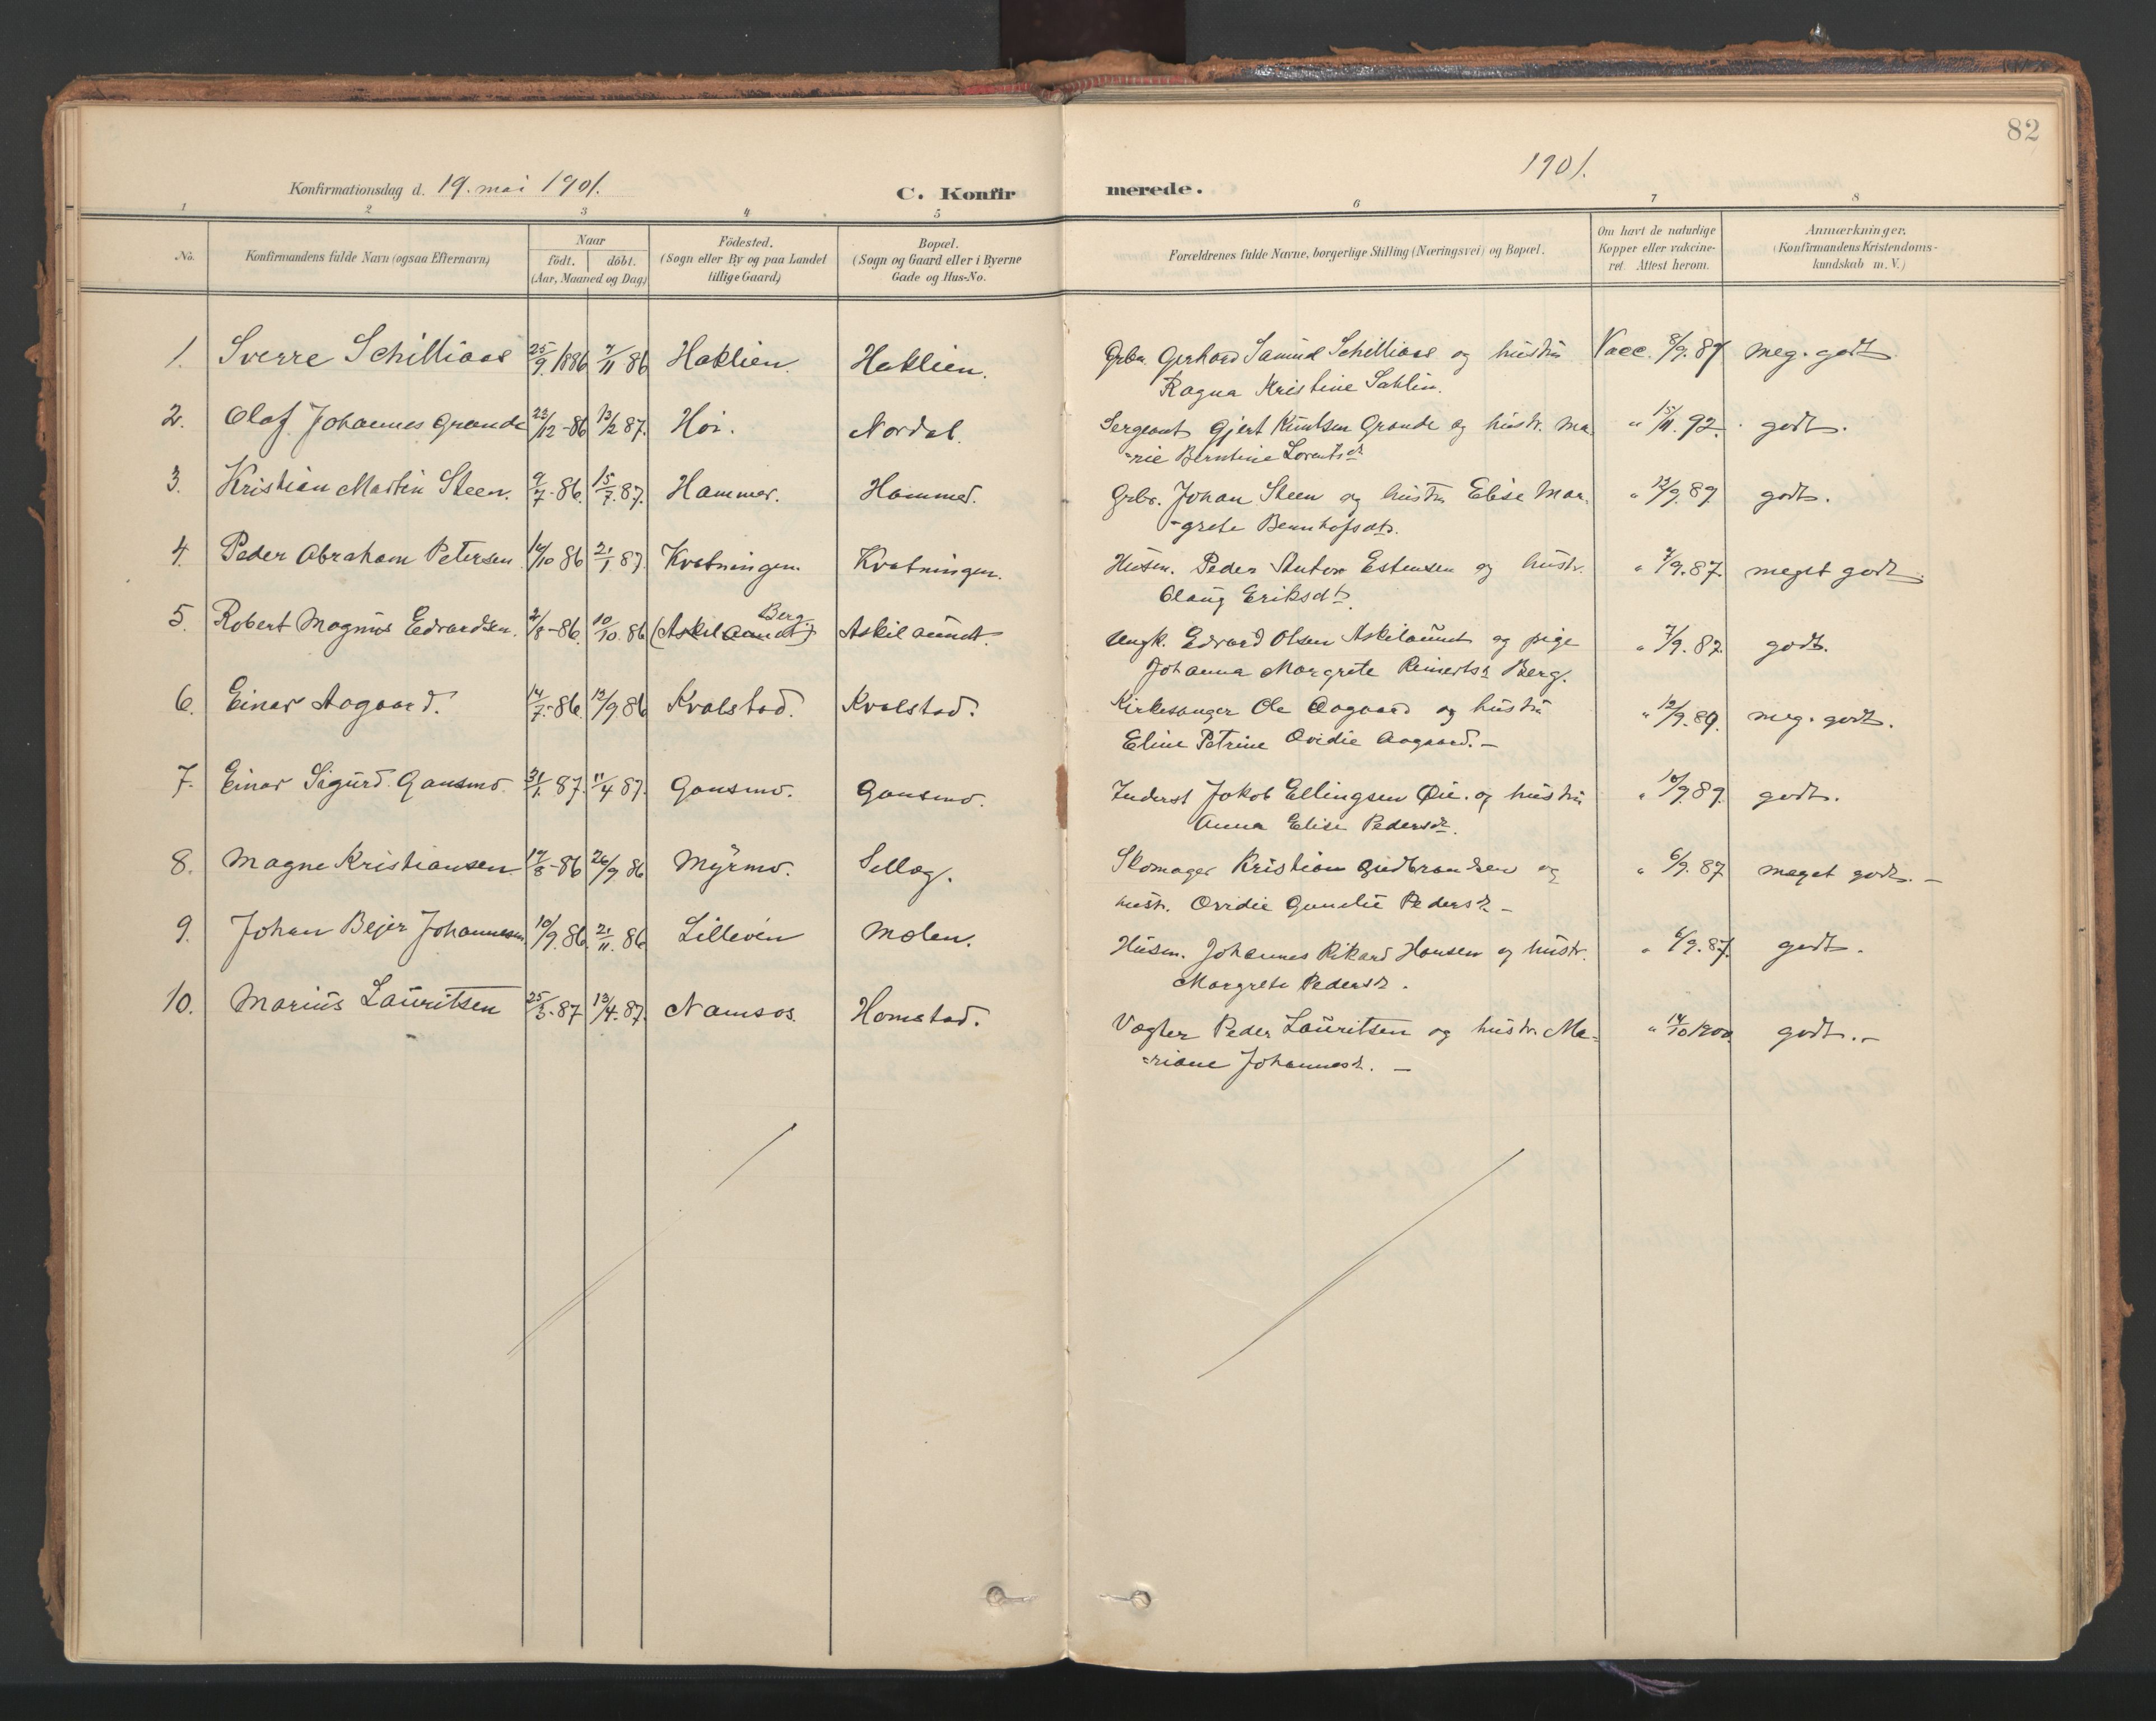 82
1901.
Konfirmationsdag d. 19. mai 1901. C. Konfirmerede.
1 2 3 4 5 6 7 8
No. Konfirmandens fulde Navn (ogsaa Efternavn) Naar födt. döbt. (Aar, Maaned og Dag) Födested. (Sogn eller By og paa Landet tillige Gaard) Bopæl. (Sogn og Gaard eller i Byerne Gade og Hus-No. Forældrenes fulde Navne, borgerlige Stilling (Næringsvei) og Bopæl. Om havt de naturlige Kopper eller vakcineret. Attest herom. Anmærkninger. (Konfirmandens Kristendomskundskab m. V.)
1. Sverre Schilliaas 25/9 1886 7/11 86 Haklien. Haklien. Grbr. Gerhard Samuel Schilliaas og hustru Vacc. 8/9. 87 meg. godt
Ragna Kristine Sahlin.
2. Olaf Johannes Grande 23/12-86 13/2 87. Höi. Nordal. Sergeant Gjert Knutsen Grande og hustr. Ma- " 15/11. 92. godt.
-rie Berntine Lorentsdr
3. Kristian Martin Steen. 9/7-86. 15/7. 87. Hammer. Hammer. Grbr. Johan Steen og hustru Elise Mar- " 12/9. 89 godt.
-grete Bennhofsdtr.
4. Peder Abraham Petersen 14/10 86 2/1 87. Kvatningen. Kvatningen. Husm. Peder Anton Estensen og hustr. " 7/9. 87. meget godt
Olaug Eriksdtr.
5. Robert Magnus Edvardsen. 2/8-86. 10/10. 86 Berg. (Askilaunet) Askilaunet. Ungk. Edvard Olsen Askilaunet og pige " 7/9. 87. godt.
Johanna Margrete Reinertsdr Berg.
6. Einar Aagaard. 14/7-86. 12/9 86 Kvalstad. Kvalstad. Kirkesanger Ole Aagaard og hustru " 12/9. 89. meg. godt.
Eline Petrine Ovidie Aagaard. -
7. Einar Sigurd Gansmo. 31/1. 87. 11/4 87. Gansmo. Gansmo. Inderst Jakob Ellingsen Øie. og hustru " 10/9 89. godt.
Anna Elise Pedersdr.
8. Magne Kristiansen. 14/8-86 26/9 86 Myrmo. Sellæg. Skomager Kristian Gudbrandsen og " 6/9. 87 meget godt. -
hustr. Ovidie Gunelie Pedersdr -
9. Johan Bejer Johannesen 10/9. 86. 21/11. 86 Lilleöen Molen. Husm. Johannes Rikard Hansen og hustr. " 6/9. 87. godt.
Margrete Pedersdr.
10. Marius Lauritsen 25/3-87 13/4. 87. Namsos. Homstad. Vogter Peder Lauritsen og hustr. Ma- " 14/10 1900. godt. -
-riane Johannesdr. -